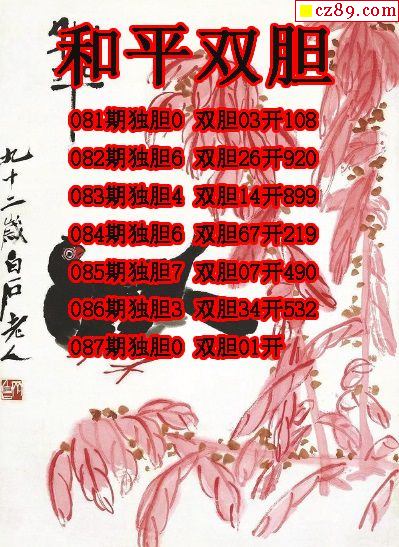 cz89.com
和平双胆
081期独胆0 双胆03开108
082期独胆6 双胆26开920
083期独胆4 双胆14开899
084期独胆6 双胆67开219
085期独胆7 双胆07开490
086期独胆3 双胆34开532
087期独胆0 双胆01开
九十二岁白石老人